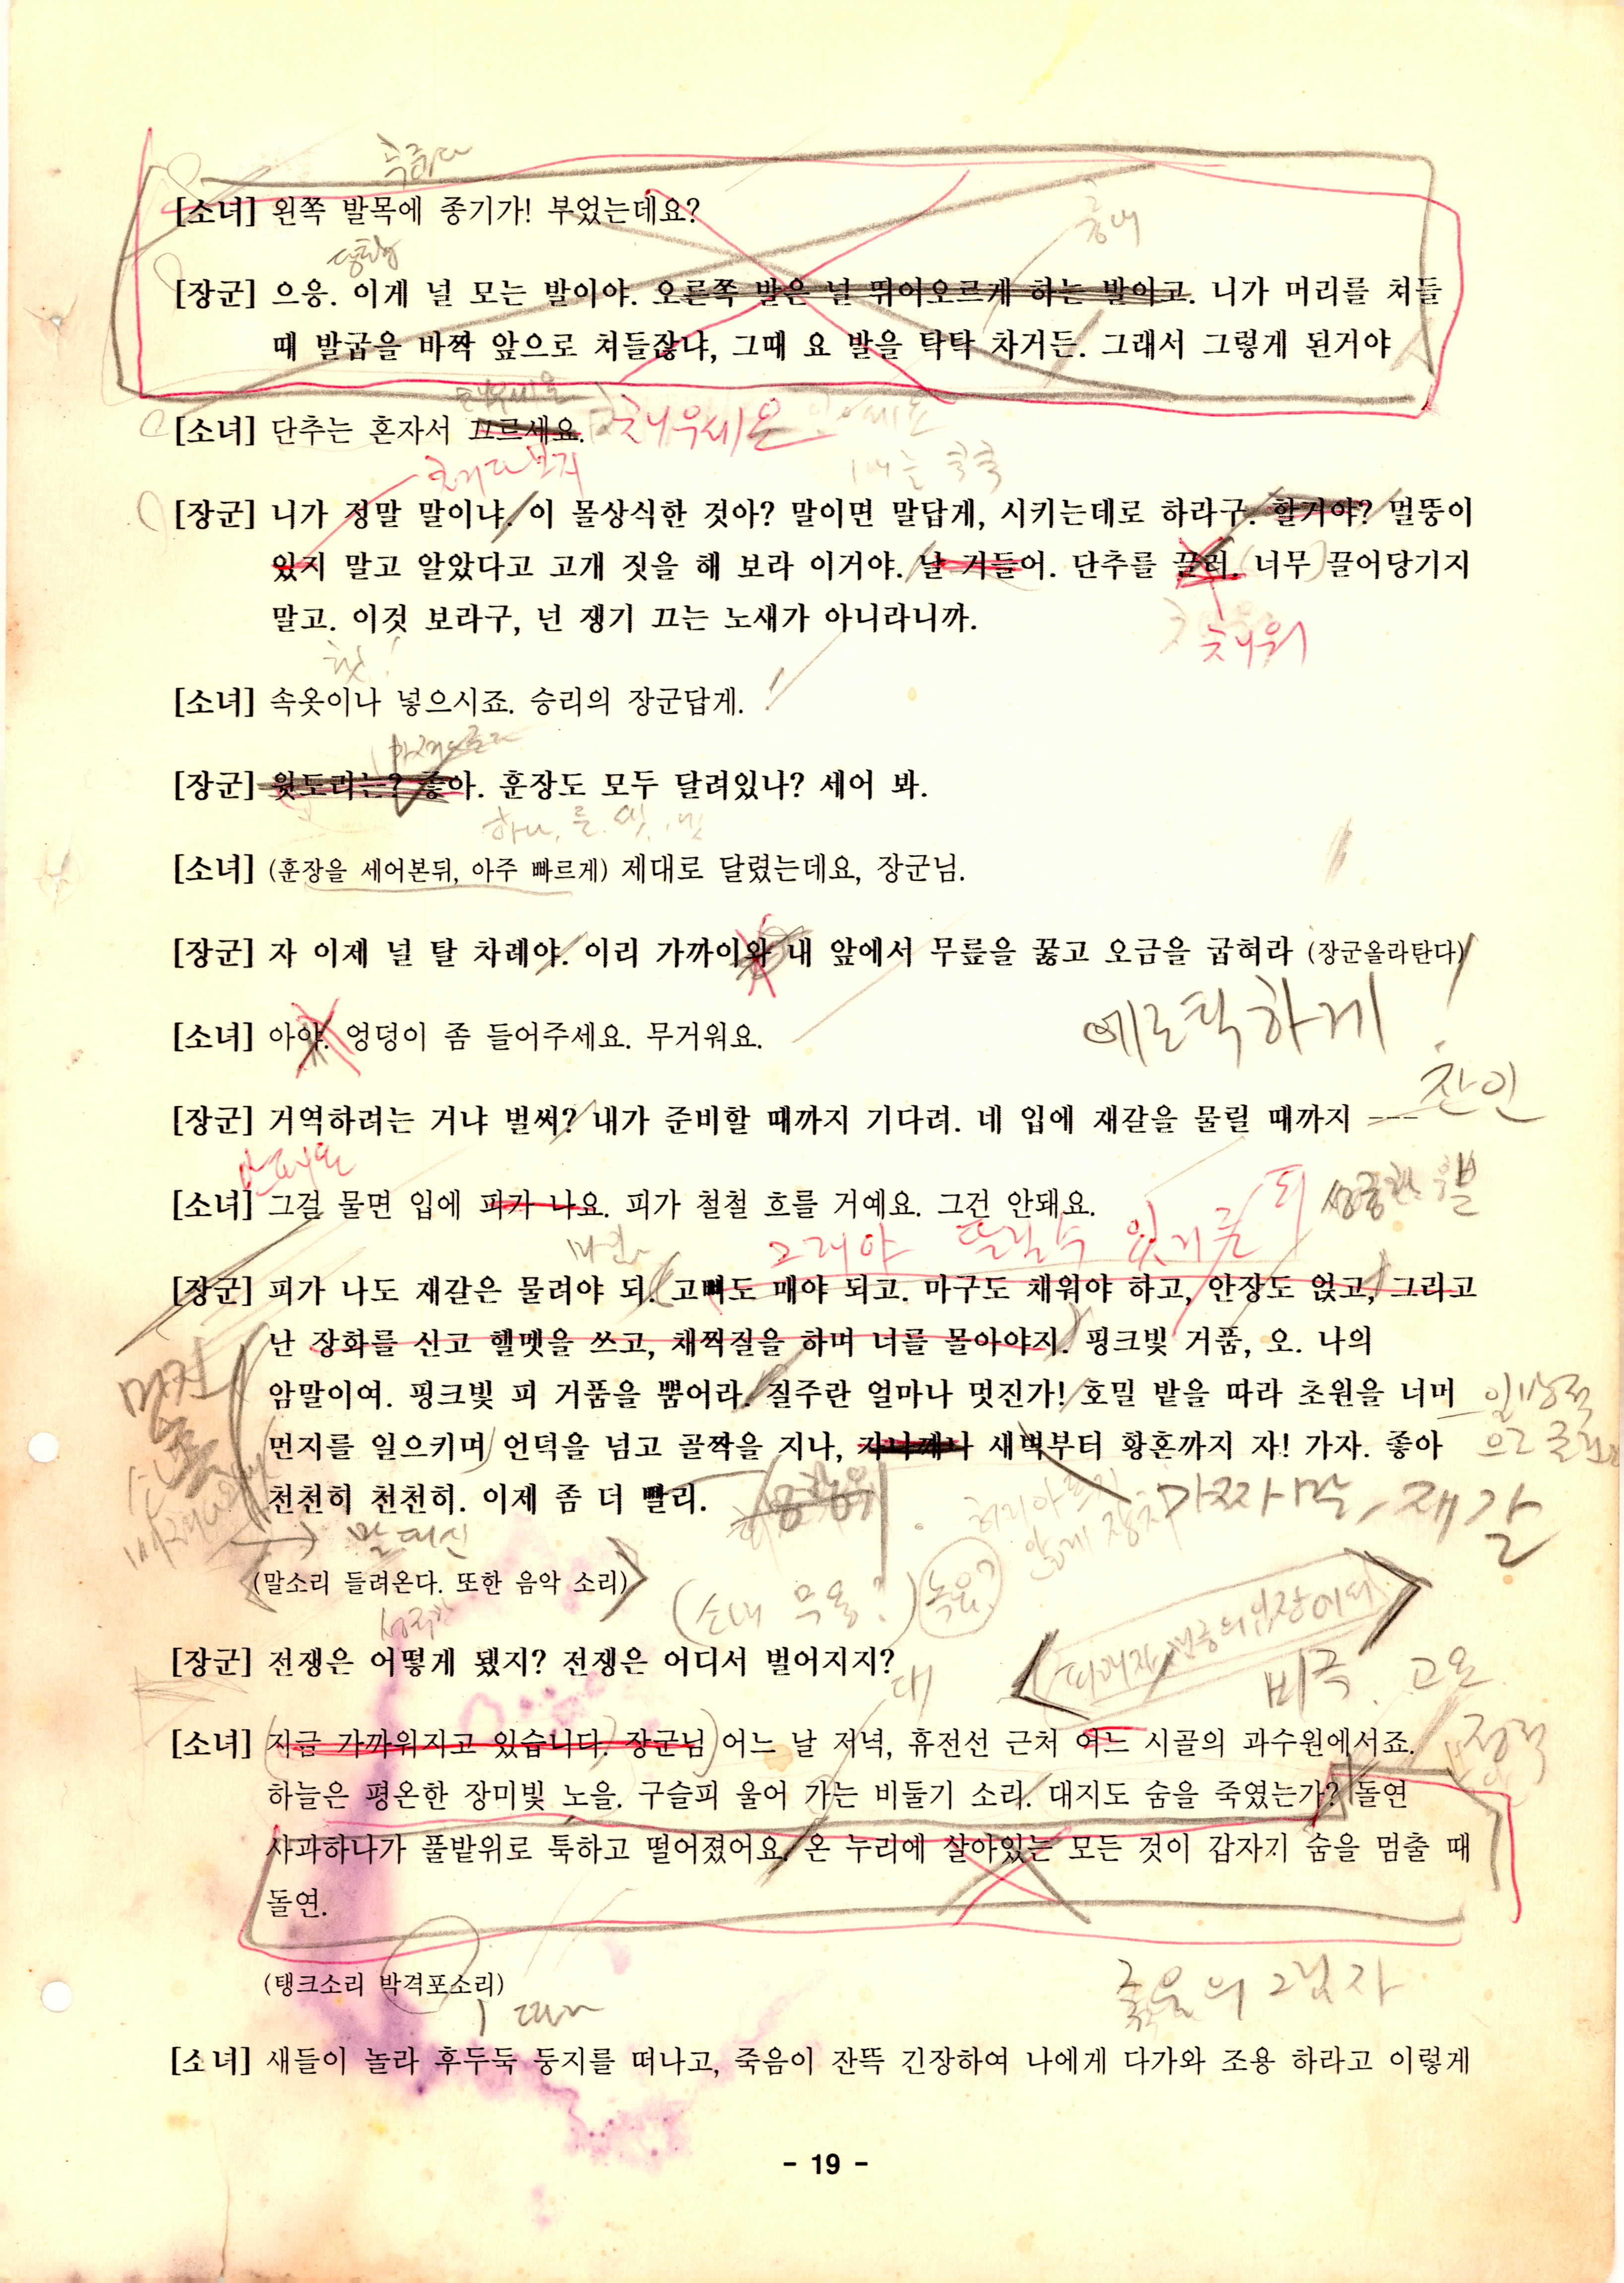 [소녀] 왼쪽 발목에 종기가! 부었는데요?
흉내
[장군] 으응. 이게 널 모는 발이야. 오른쪽 발은 널 뛰어오르게 하는 발이고. 니가 머리를 쳐들
때 발굽을 바짝 앞으로 쳐들잖냐, 그때 요 발을 탁탁 차거든. 그래서 그렇게 된거야
[소녀] 단추는 혼자서 끄르세요. 채우세요
쳐다보지
[장군] 니가 정말 말이냐. 이 몰상식한 것아? 말이면 말답게, 시키는데로 하라구. 할거야? 멀뚱이
있지 말고 알았다고 고개 짓을 해 보라 이거야. 날 거들어. 단추를 끌러. 너무 끌어당기지
말고. 이것 보라구, 넌 쟁기 끄는 노새가 아니라니까.
채워
[소녀] 속옷이나 넣으시죠. 승리의 장군답게. !
[장군] 윗도리는? 좋아. 훈장도 모두 달려있나? 세어 봐.
하나, 둘, 셋, 넷
[소녀] (훈장을 세어본뒤, 아주 빠르게) 제대로 달렸는데요, 장군님.
[장군] 자 이제 널 탈 차례야. 이리 가까이와 내 앞에서 무릎을 꿇고 오금을 굽혀라 (장군올라탄다)
에로틱하게
[소녀] 아야. 엉덩이 좀 들어주세요. 무거워요.
잔인
[장군] 거역하려는 거냐 벌써? 내가 준비할 때까지 기다려. 네 입에 재갈을 물릴 때까지
안돼요
[소녀] 그걸 물면 입에 피가 나요. 피가 철철 흐를 거예요. 그건 안돼요.
그래야 달릴수 있거든
[장군] 피가 나도 재갈은 물려야 되. 고삐도 매야 되고. 마구도 채워야 하고, 안장도 얹고, 그리고
난 장화를 신고 헬멧을 쓰고, 채찍질을 하며 너를 몰아야지. 핑크빛 거품, 오. 나의
암말이여. 핑크빛 피 거품을 뿜어라. 질주란 얼마나 멋진가! 호밀 밭을 따라 초원을 너머
먼지를 일으키며 언덕을 넘고 골짝을 지나, 새벽부터 황혼까지 자! 가자. 좋아
천천히 천천히. 이제 좀 더 빨리.
가짜 말, 재갈
말 대신
(말소리 들려온다. 또한 음악 소리)
(소녀 무용?) 녹음?
[장군] 전쟁은 어떻게 됐지? 전쟁은 어디서 벌어지지?
비극. 고요
대
[소녀] 지금 가까워지고 있습니다. 장군님 어느 날 저녁, 휴전선 근처 어느 시골의 과수원에서죠.
정적
하늘은 평온한 장미빛 노을. 구슬피 울어 가는 비둘기 소리. 대지도 숨을 죽였는가? 돌연
사과하나가 풀밭위로 툭하고 떨어졌어요. 온 누리에 살아있는 모든 것이 갑자기 숨을 멈출 때
돌연.
(탱크소리 박격포소리)
죽음의 그림자
[소녀] 새들이 놀라 후두둑 둥지를 떠나고, 죽음이 잔뜩 긴장하여 나에게 다가와 조용 하라고 이렇게
- 19 -